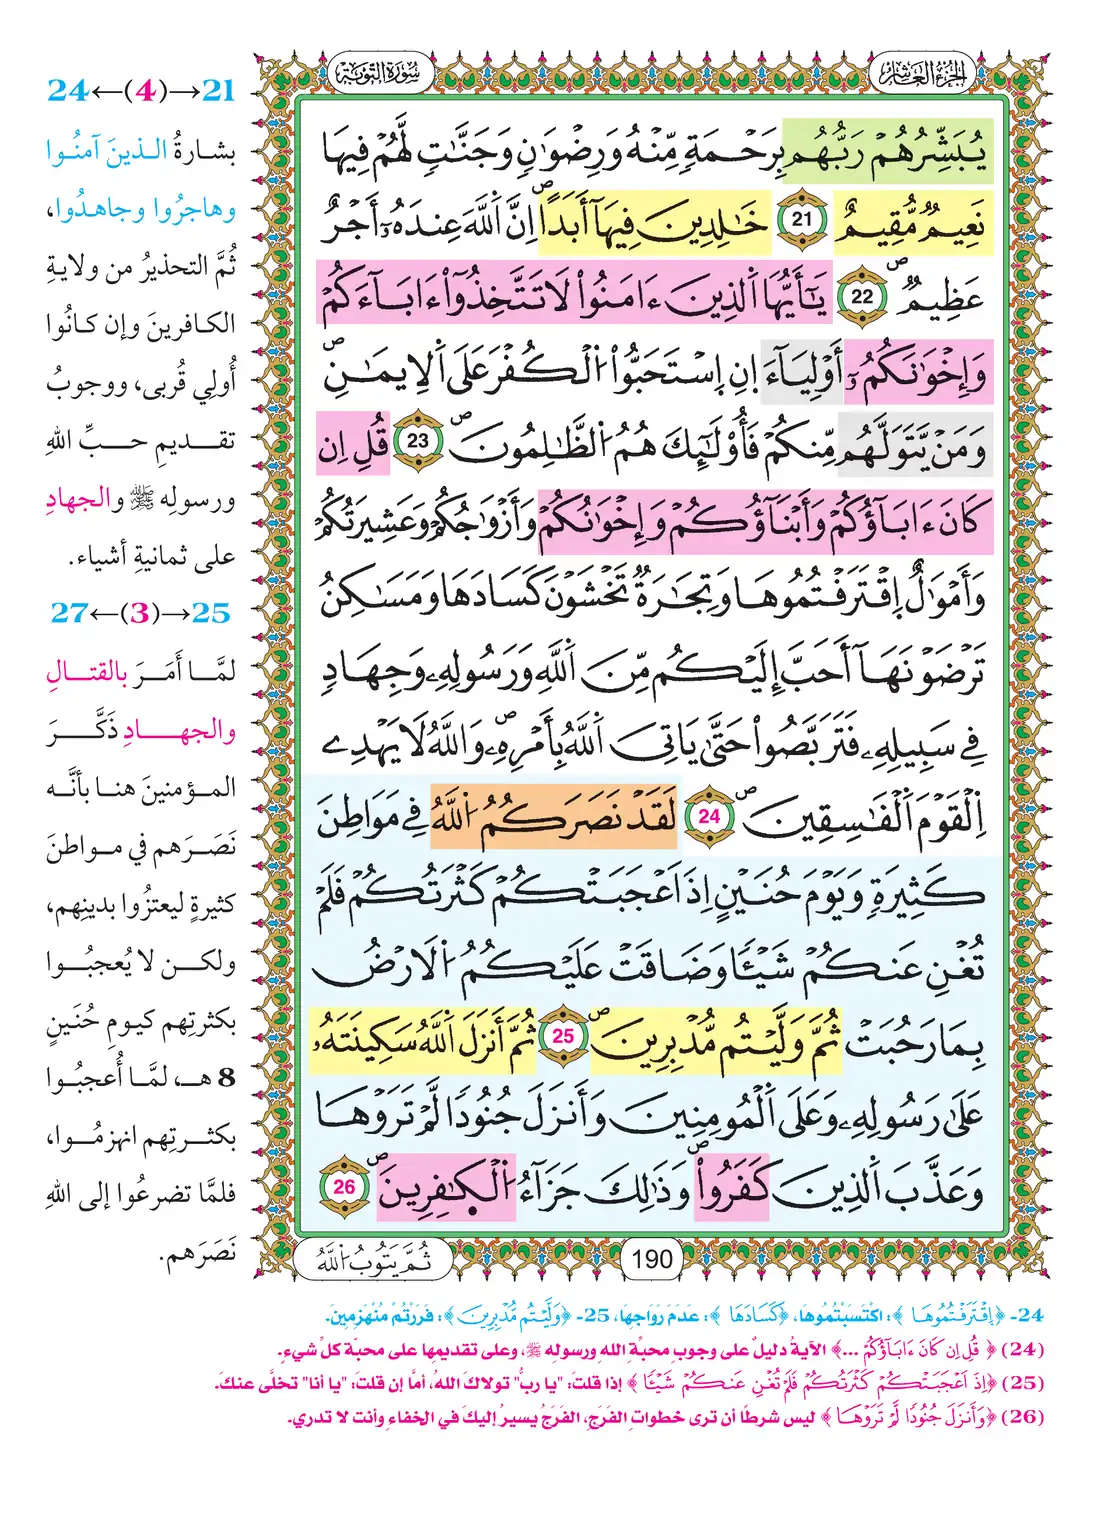 الجزء العاشر
سورة التوبة
يُبَشِّرُهُمْ رَبُّهُم بِرَحْمَةٍ مِّنْهُ وَرِضْوَٰنٍ وَجَنَّٰتٍ لَّهُمْ فِيهَا
نَعِيمٌ مُّقِيمٌ 21 خَٰلِدِينَ فِيهَآ أَبَدًاۖ إِنَّ اَ۬للَّهَ عِندَهُۥٓ أَجْرٌ
عَظِيمٌۖ 22 يَٰٓأَيُّهَا اَ۬لذِينَ ءَامَنُواْ لَا تَتَّخِذُوٓاْ ءَابَآءَكُمْ
وَإِخْوَٰنَكُمُۥٓ أَوْلِيَآءَ اِ۪نِ اِ۪سْتَحَبُّواْ اُ۬لْكُفْرَ عَلَى اَ۬لِايمَٰنِۖ
وَمَنْ يَّتَوَلَّهُم مِّنكُمْ فَأُوْلَٰٓئِكَ هُمُ اُ۬لظَّٰلِمُونَۖ 23 قُلِ اِن
كَانَ ءَابَآؤُكُمْ وَأَبْنَآؤُكُمْ وَإِخْوَٰنُكُمْ وَأَزْوَٰجُكُمْ وَعَشِيرَتُكُمْ
وَأَمْوَٰلٌ اِ۪قْتَرَفْتُمُوهَا وَتِجَٰرَةٌ تَخْشَوْنَ كَسَادَهَا وَمَسَٰكِنُ
تَرْضَوْنَهَآ أَحَبَّ إِلَيْكُم مِّنَ اَ۬للَّهِ وَرَسُولِهِۦ وَجِهَادٍ
فِي سَبِيلِهِۦ فَتَرَبَّصُواْ حَتَّىٰ يَاتِيَ اَ۬للَّهُ بِأَمْرِهِۦۖ وَاللَّهُ لَا يَهْدِے
اِ۬لْقَوْمَ اَ۬لْفَٰسِقِينَۖ 24 لَقَدْ نَصَرَكُمُ اُ۬للَّهُ فِي مَوَاطِنَ
كَثِيرَةٍ وَيَوْمَ حُنَيْنٍ اِذَ اَعْجَبَتْكُمْ كَثْرَتُكُمْ فَلَمْ
تُغْنِ عَنكُمْ شَيْـًٔا وَضَاقَتْ عَلَيْكُمُ اُ۬لَارْضُ
بِمَا رَحُبَتْ ثُمَّ وَلَّيْتُم مُّدْبِرِينَۖ 25 ثُمَّ أَنزَلَ اَ۬للَّهُ سَكِينَتَهُۥ
عَلَىٰ رَسُولِهِۦ وَعَلَى اَ۬لْمُومِنِينَ وَأَنزَلَ جُنُودًا لَّمْ تَرَوْهَا
وَعَذَّبَ اَ۬لذِينَ كَفَرُواْۖ وَذَٰلِكَ جَزَآءُ اُ۬لْكَٰفِرِينَۖ 26
ثُمَّ يَتُوبُ اُ۬للَّهُ
190
21→(4)←24
بشارةُ الذينَ آمنُوا
وهاجرُوا وجاهدُوا،
ثُمَّ التحذيرُ من ولايةِ
الكافرينَ وإن كانُوا
أُولِي قُربى، ووجوبُ
تقديمِ حبِّ اللهِ
ورسولِه ﷺ والجهادِ
على ثمانيةِ أشياء.
25→(3)←27
لمَّا أَمَرَ بالقتالِ
والجهادِ ذَكَّرَ
المؤمنينَ هنا بأنَّه
نَصَرَهم في مواطنَ
كثيرةٍ ليعتزُّوا بدينِهم،
ولكن لا يُعجبُوا
بكثرتِهم كيومِ حُنَينٍ
8 هـ، لمَّا أُعجبُوا
بكثرتِهم انهزمُوا،
فلمَّا تضرعُوا إلى اللهِ
نَصَرَهم.
24- ﴿اِ۪قْتَرَفْتُمُوهَا﴾: اكْتَسَبْتُمُوهَا، ﴿كَسَادَهَا﴾: عَدَمَ رَوَاجِهَا، 25- ﴿وَلَّيْتُم مُّدْبِرِينَ﴾: فَرَرْتُمْ مُنْهَزِمِينَ.
(24) ﴿قُلِ اِن كَانَ ءَابَآؤُكُمْ ...﴾ الآيةُ دليلٌ على وجوبِ محبَّةِ اللهِ ورسولِه ﷺ، وعلى تقديمِها على محبَّةِ كلِّ شيءٍ.
(25) ﴿اِذَ اَعْجَبَتْكُمْ كَثْرَتُكُمْ فَلَمْ تُغْنِ عَنكُمْ شَيْـًٔا﴾ إذا قلتَ: "يا ربُّ" تولاكَ اللهُ، أمَّا إن قلتَ: "يا أنا" تخلَّى عنكَ.
(26) ﴿وَأَنزَلَ جُنُودًا لَّمْ تَرَوْهَا﴾ ليس شرطًا أن ترى خطواتِ الفَرَجِ، الفَرَجُ يسيرُ إليكَ في الخفاءِ وأنت لا تدري.